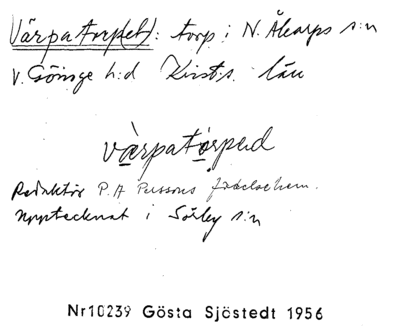 Värpatorp(et): torp i N. Åkarps s:n
V. Göinge h:d Krist:s. län
värpatórped
Redaktör P. A Perssons födelsehem.
Upptecknat i Sörby s:n
Nr10239 Gösta Sjöstedt 1956